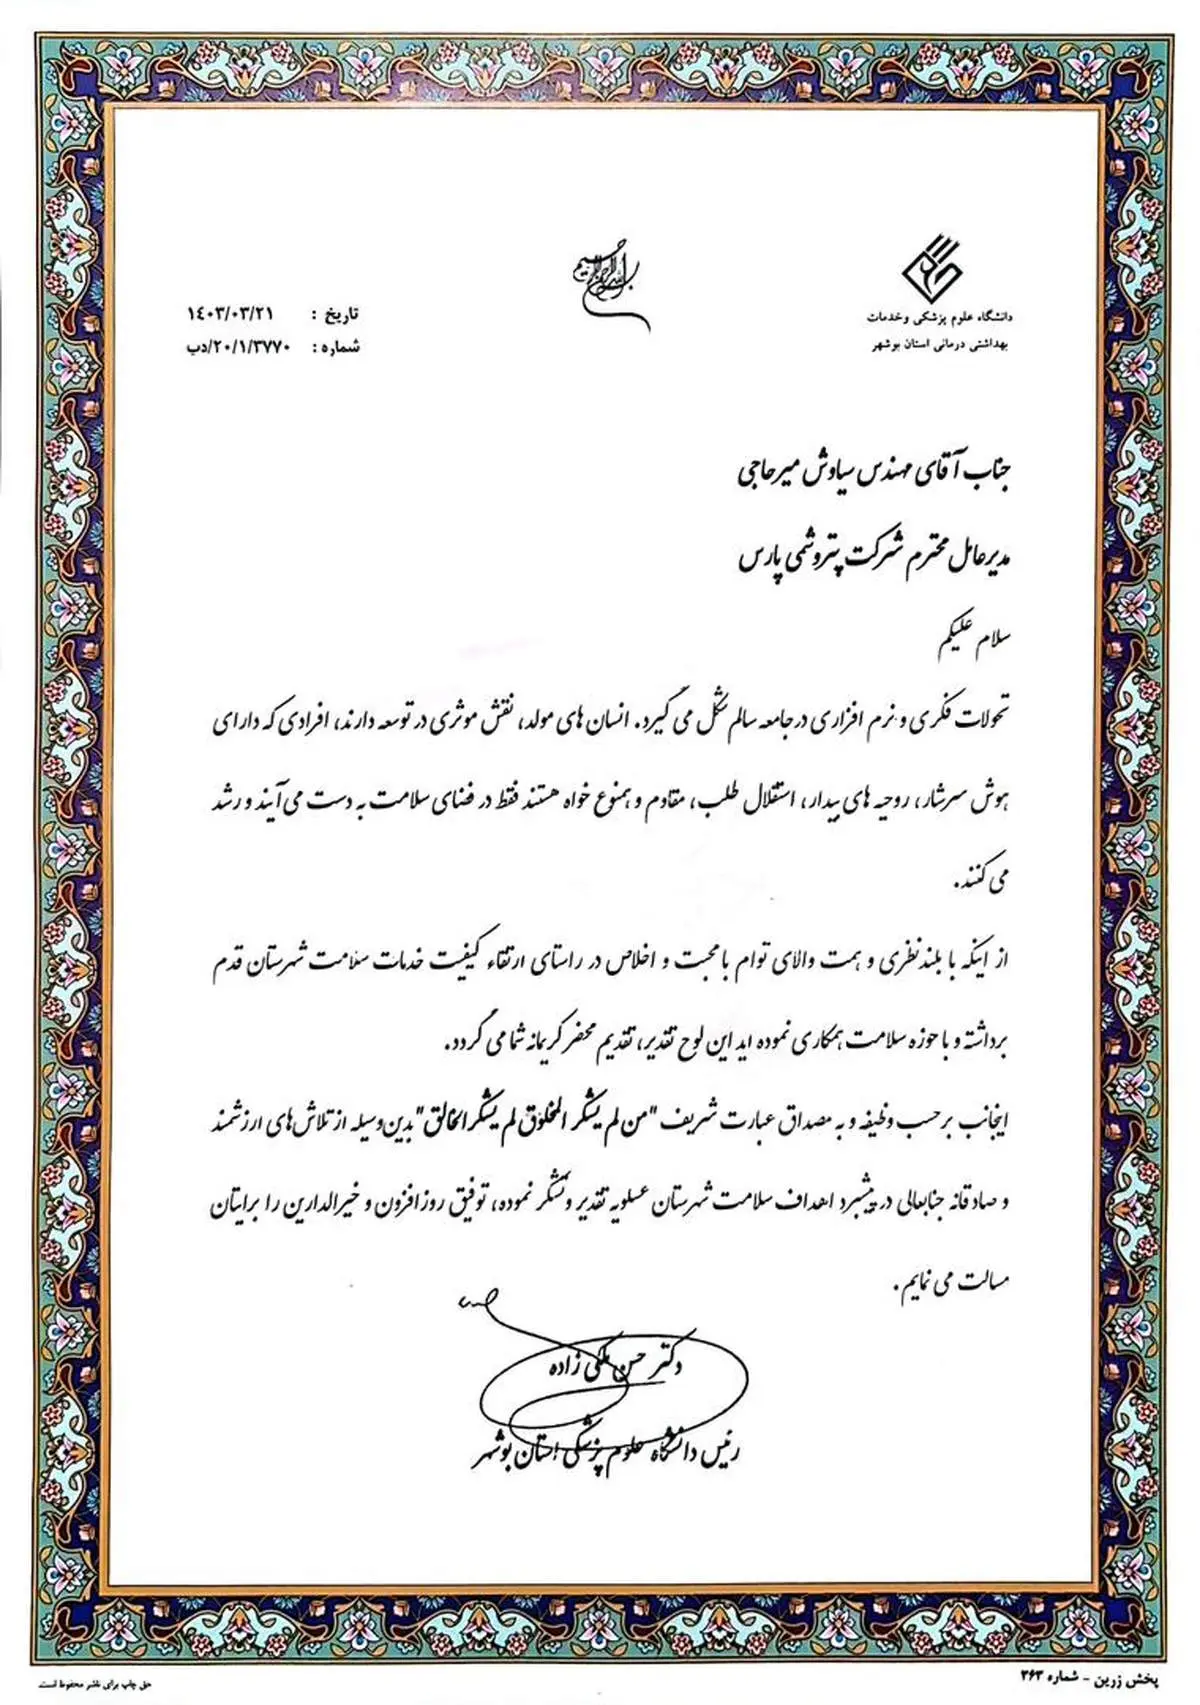 بسم الله الرحمن الرحیم
دانشگاه علوم پزشکی وخدمات
بهداشتی درمانی استان بوشهر
تاریخ : ۱٤۰۳/۰۳/۲۱
شماره : ۲۰/۱/۳۷۷۰/دب
جناب آقای مهندس سیاوش میرحاجی
مدیرعامل محترم شرکت پتروشیمی پارس
سلام علیکم
تحولات فکری و نرم افزاری در جامعه سالم شکل می گیرد. انسان های مولد، نقش موثری در توسعه دارند، افرادی که دارای
هوش سرشار، روحیه های بیدار، استقلال طلب، مقاوم و همنوع خواه هستند فقط در فضای سلامت به دست می آیند و رشد
می کنند.
از اینکه با بلندنظری و همت والای توام با محبت و اخلاص در راستای ارتقاء کیفیت خدمات سلامت شهرستان قدم
برداشته و با حوزه سلامت همکاری نموده اید این لوح تقدیر، تقدیم محضر کریمانه شما می گردد.
اینجانب بر حسب وظیفه و به مصداق عبارت شریف "من لم یشکر المخلوق لم یشکر الخالق" بدین وسیله از تلاش های ارزشمند
و صادقانه جنابعالی در پیشبرد اهداف سلامت شهرستان عسلویه تقدیر و تشکر نموده، توفیق روز افزون و خیرالدارین را برایتان
مسالت می نمایم.
دکتر حسن ملکی زاده
رئیس دانشگاه علوم پزشکی استان بوشهر
پخش زرین - شماره ۲۶۳
حق چاپ برای ناشر محفوظ است.